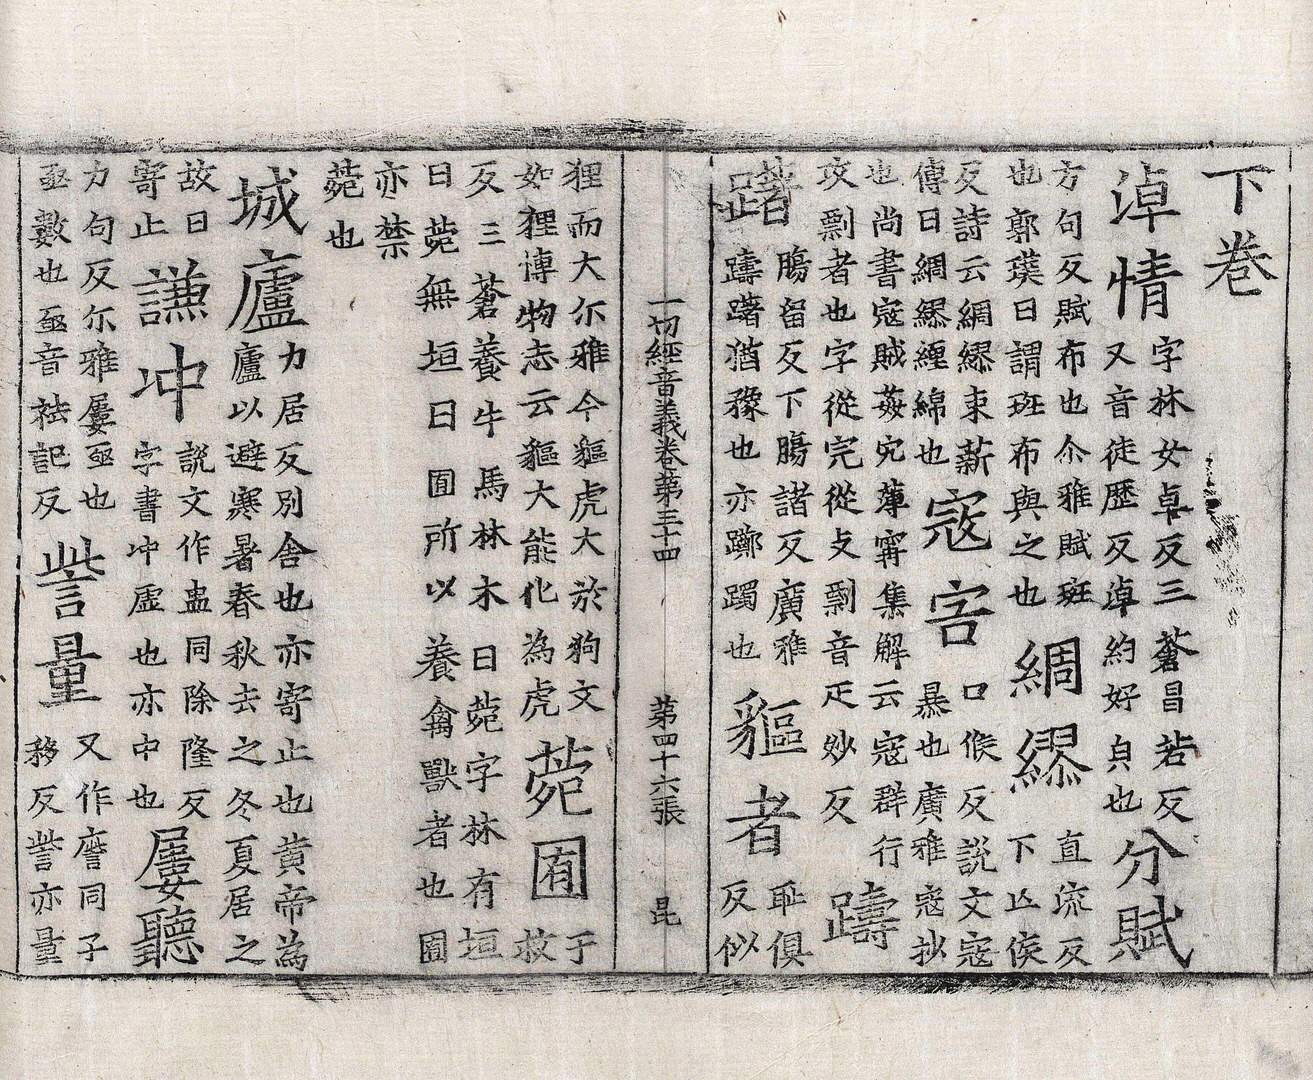 下卷
淖情字林女卓反三蒼昌若反
又音徒歷反淖約好皃也分賦
方句反賦布也尒雅賦班
也郭璞曰謂班布與之也綢繆直流反
下亡侯
反詩云綢繆束薪
傳曰綢繆纏綿也寇害口候反說文寇
暴也廣雅寇抄
也尚書寇賊姦宄薄甯集解云寇群行
攻剽者也字從完從攴剽音疋妙反躊
躇腸留反下腸諸反廣雅
躊躇猶豫也亦躑躅也貙者恥俱
反似
一切經音義卷第三十四 第四十六張 昆
狸而大尒雅今貙虎大於狗文
如狸博物志云貙大能化為虎菀囿于
救
反三蒼養牛馬林木曰菀字林有垣
曰菀無垣曰囿所以養禽獸者也囿
亦禁
菀也
城廬力居反別舍也亦寄止也黃帝為
廬以避寒暑春秋去之冬夏居之
故曰
寄止謙冲說文作盅同除隆反
字書冲虛也亦中也屢聽
力句反尒雅屢亟也
亟數也亟音祛記反訾量又作同子
移反訾亦量